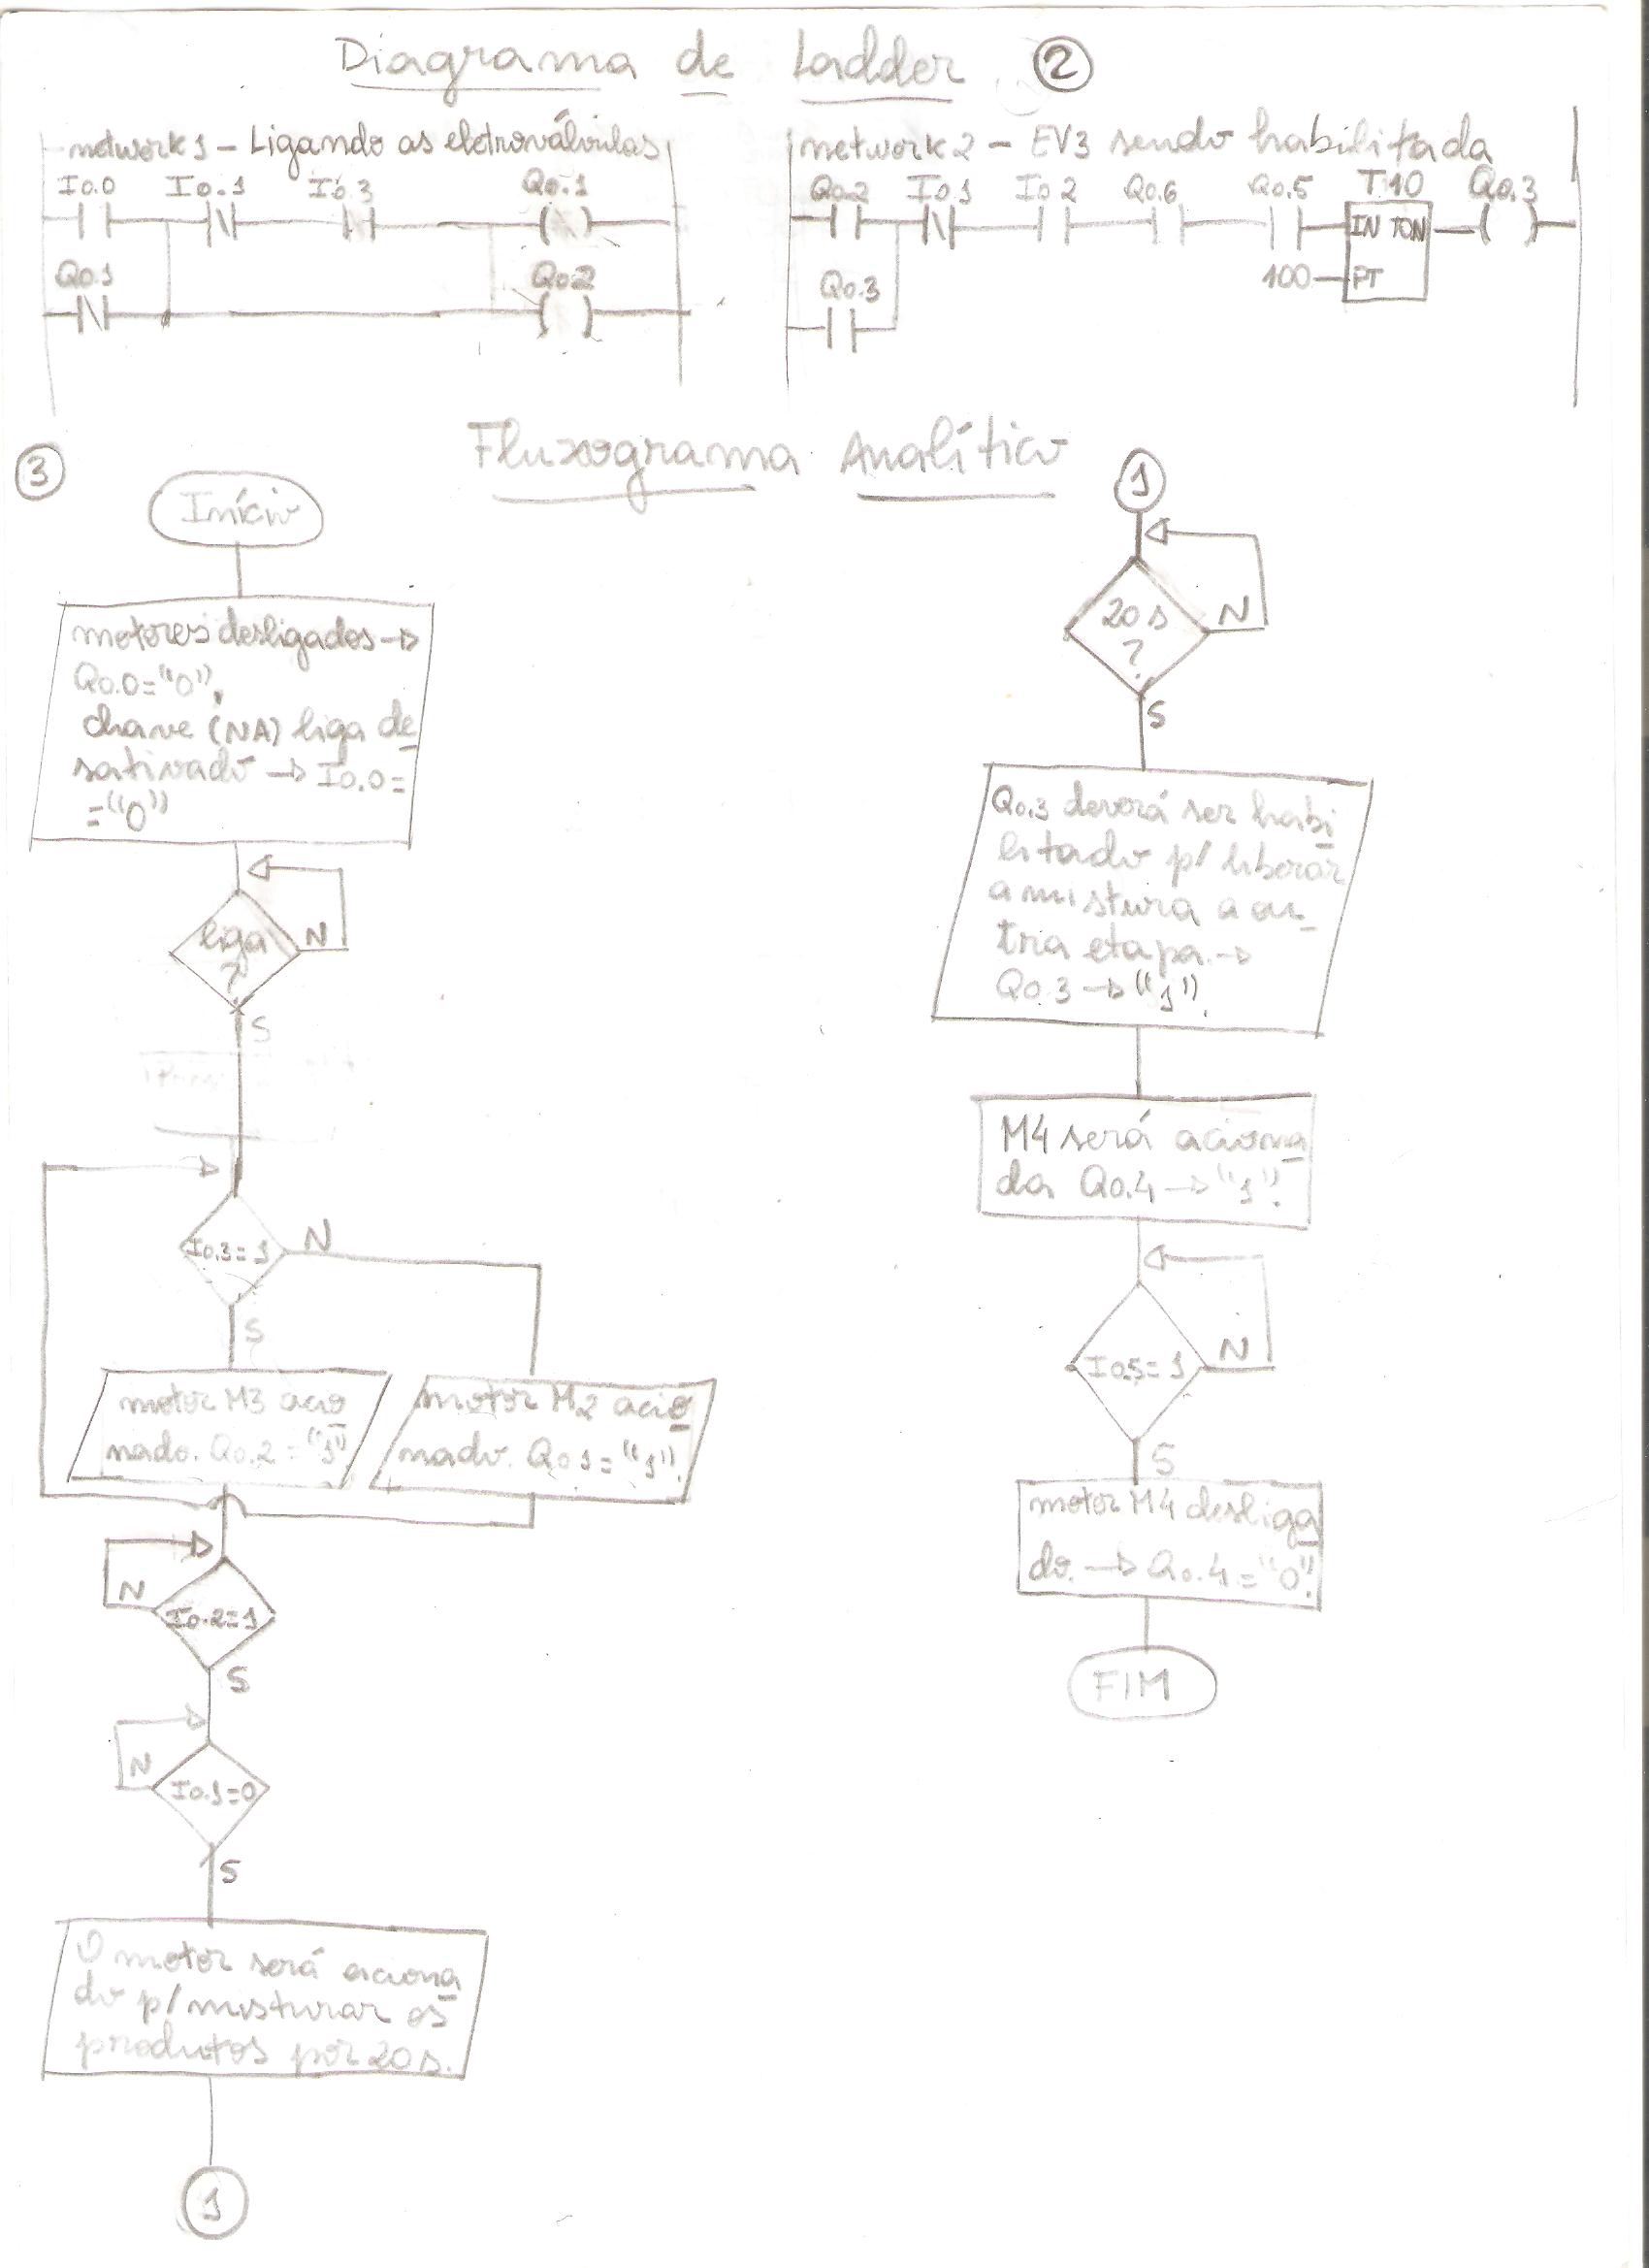 Diagrama de Ladder ②
network 1 - Ligando as eletroválvulas
I0.0 I0.1 I0.3 Q0.1
Q0.1 Q0.2
network 2 - EV3 sendo habilitada
Q0.2 I0.1 I0.2 Q0.6 Q0.5 T10 Q0.3
IN TON
Q0.3 100 PT
Fluxograma Analítico
③
Início
motores desligados →
Q0.0="0",
chave (NA) liga de
sativado → I0.0=
="0"
liga
?
N
S
I0.3=1
N
S
motor M3 acio
nado. Q0.2="1"
motor M2 acio
nado. Q0.1="1".
N
I0.2=1
S
N
I0.1=0
S
O motor será aciona
do p/ misturar os
produtos por 20s.
1
1
20s
?
N
S
Q0.3 deverá ser habi
litado p/ liberar
a mistura a ou
tra etapa. →
Q0.3 → "1".
M4 será aciona
do. Q0.4 → "1".
I0.5=1
N
S
motor M4 desliga
do. → Q0.4="0".
FIM